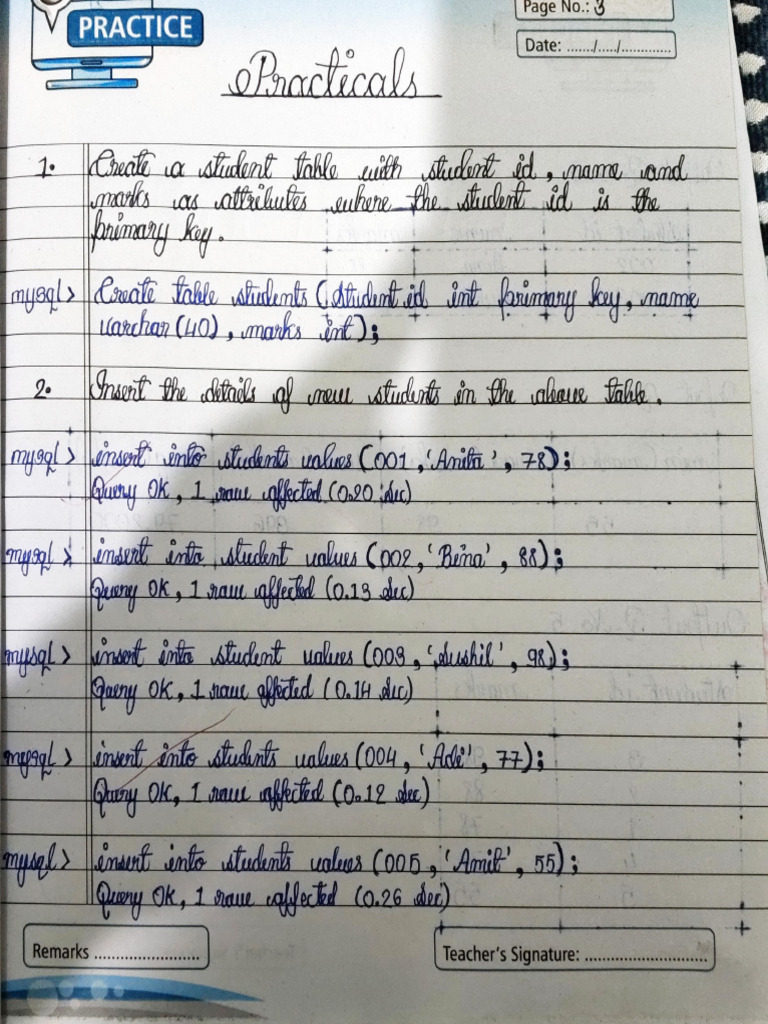 PRACTICE
Page No.: 3
Date: ....../...../.............
Practicals
1. Create a student table with student id, name and
marks as attributes where the student id is the
primary key.
mysql> Create table students (student id int primary key, name
varchar(40), marks int);
2. Insert the details of new students in the above table.
mysql> insert into students values (001, 'Anita', 78);
Query OK, 1 row affected (0.20 sec)
mysql> insert into student values (002, 'Bena', 88);
Query OK, 1 row affected (0.13 sec)
mysql> insert into student values (003, 'Sushil', 98);
Query OK, 1 row affected (0.14 sec)
mysql> insert into students values (004, 'Adi', 77);
Query OK, 1 row affected (0.12 sec)
mysql> insert into students values (005, 'Amit', 55);
Query OK, 1 row affected (0.26 sec)
Remarks ........................
Teacher's Signature: ............................